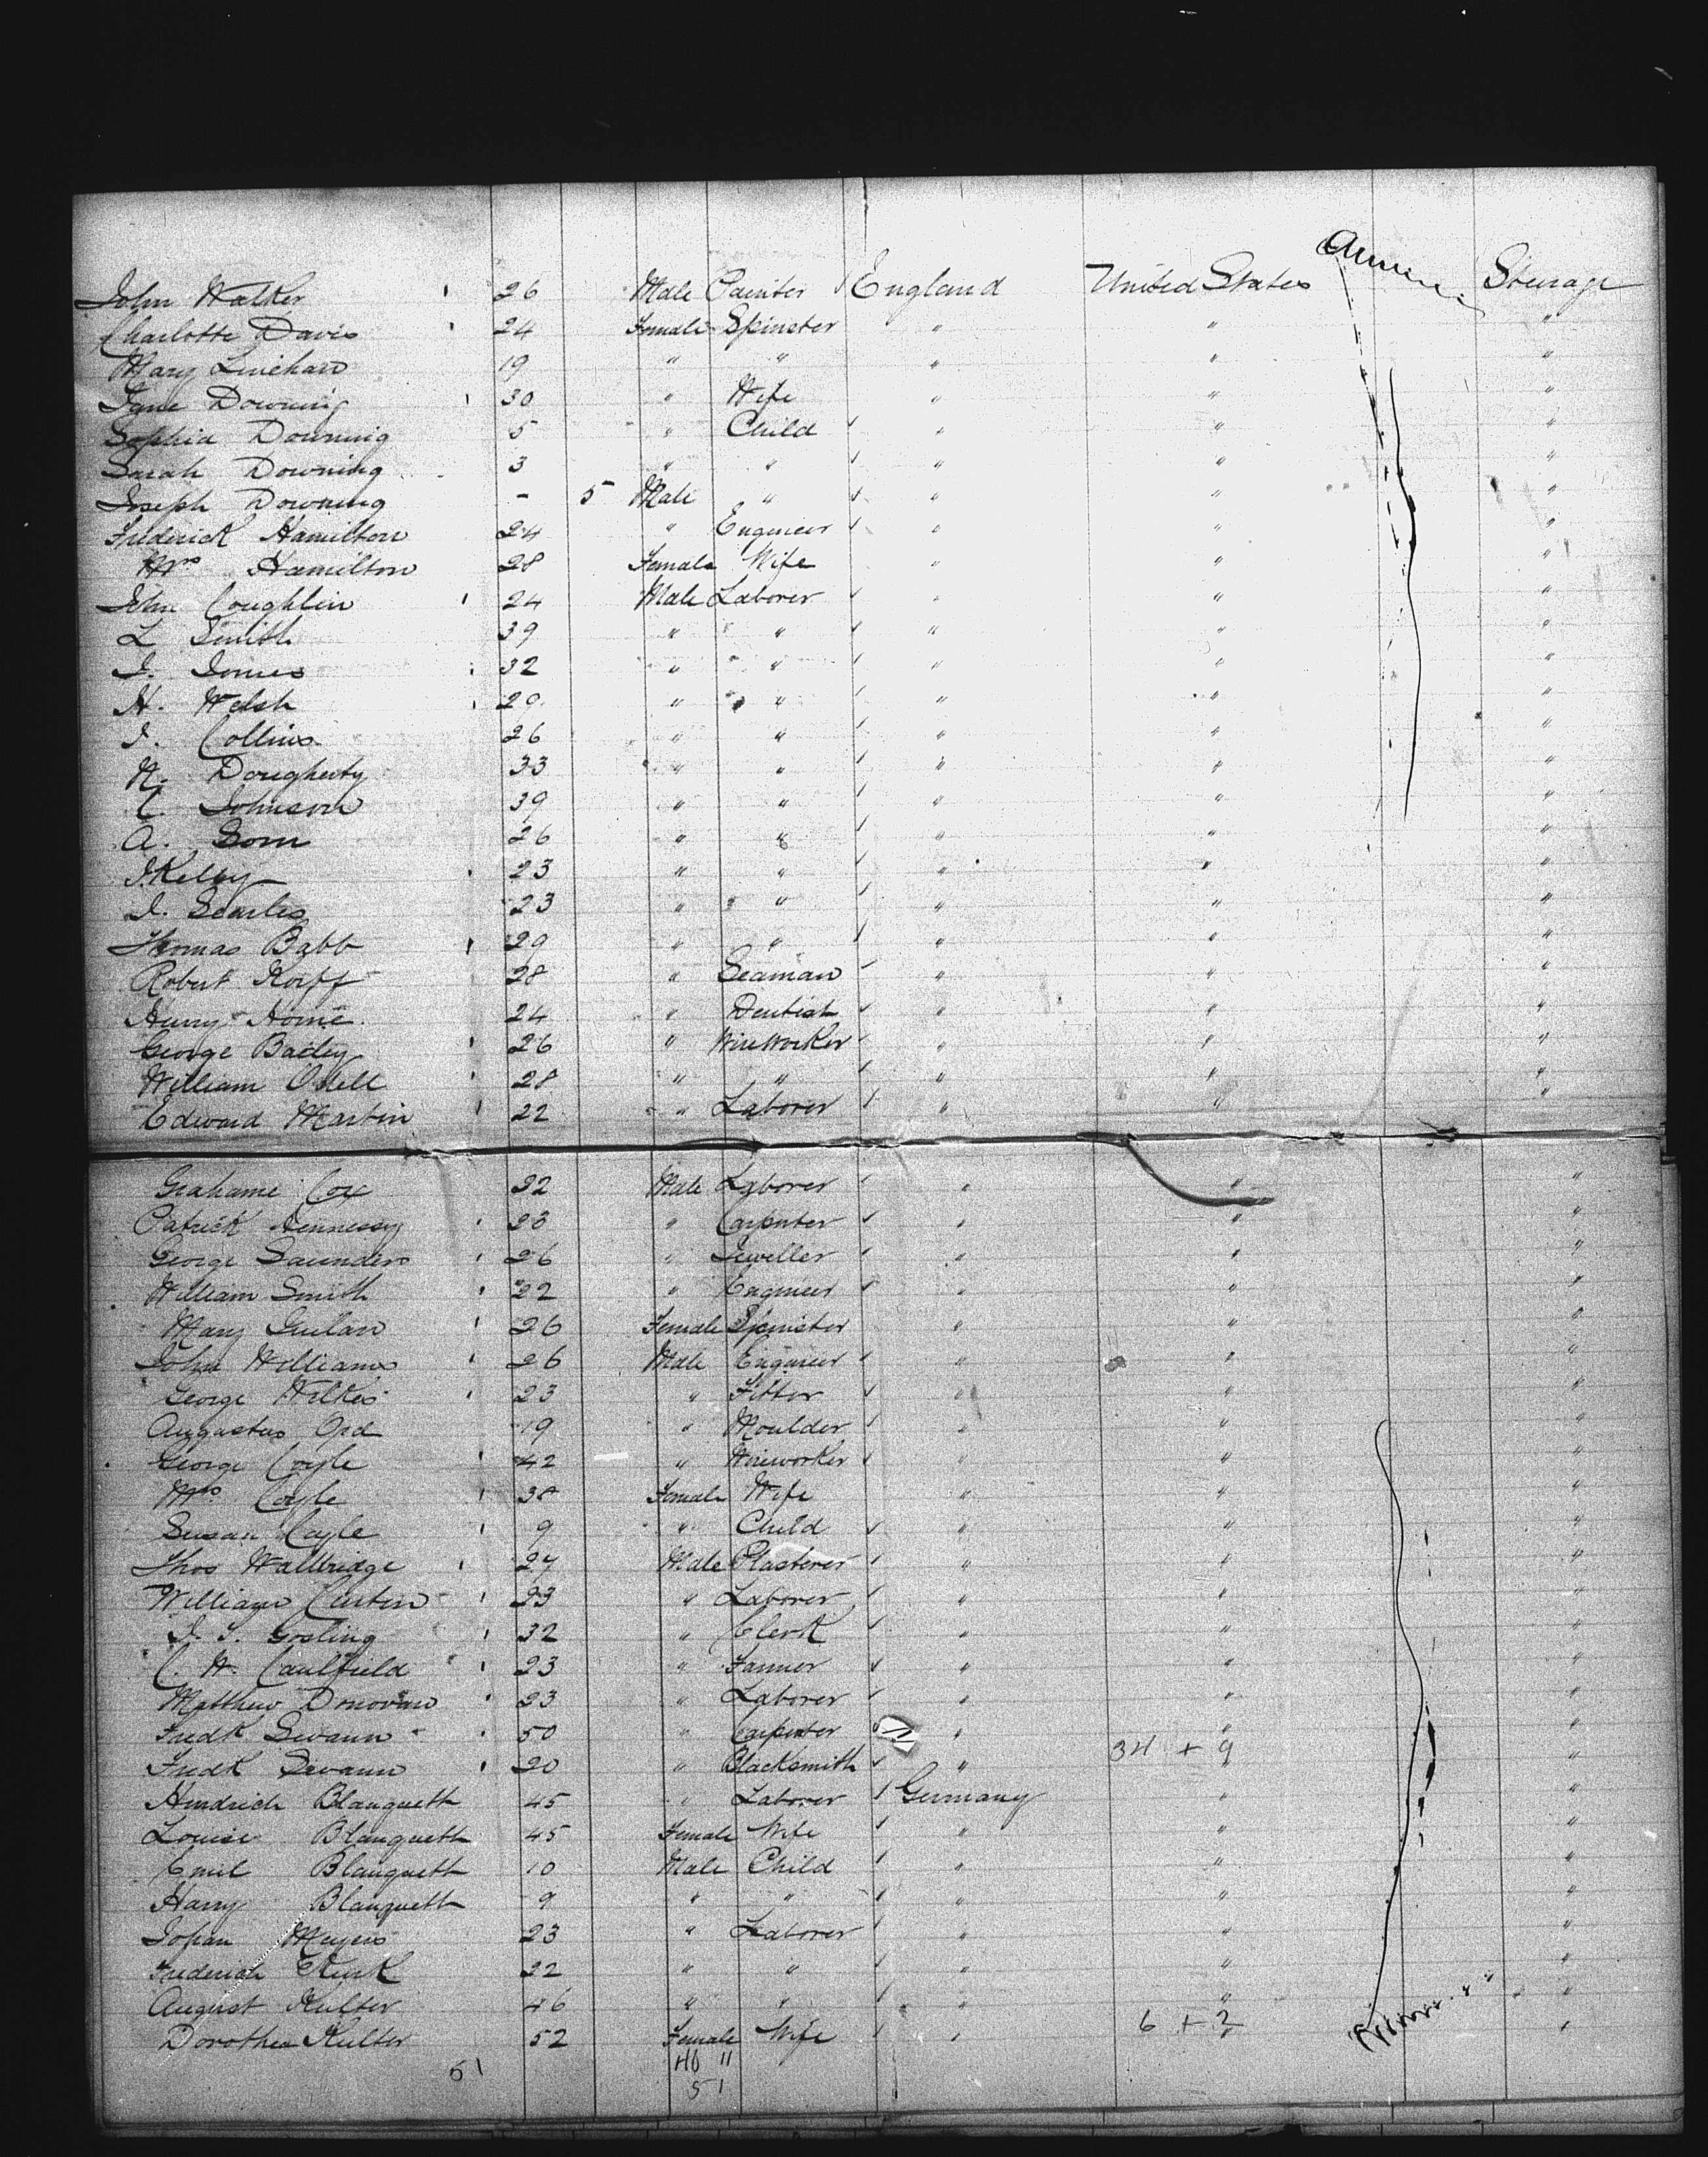 John Walker 26 Male Painter England United States Steerage
Charlotte Davis 24 Female Spinster " " "
Mary Linehan 19 " " " " "
Jane Downing 30 " Wife " " "
Sophia Downing 5 " Child " " "
Sarah Downing 3 " " " " "
Joseph Downing - 5 Male " " " "
Frederick Hamilton 24 " Engineer " " "
Mrs Hamilton 28 Female Wife " " "
John Coughlin 24 Male Laborer " " "
L Smith 39 " " " " "
J. Jones 32 " " " " "
H. Welsh 29 " " " " "
J. Collins 26 " " " " "
N. Dougherty 33 " " " " "
C. Johnson 39 " " " " "
A. Som 26 " " " " "
J. Kelly 23 " " " " "
J. Searles 23 " " " " "
Thomas Babb 29 " " " " "
Robert Korff 28 " Seaman " " "
Henry Horne 24 " Dentist " " "
George Bailey 26 " Wireworker " " "
William Odell 28 " " " " "
Edward Martin 22 " Laborer " " "
Grahame Cox 32 Male Laborer " " "
Patrick Hennessy 23 " Carpenter " " "
George Saunders 26 " Jeweller " " "
William Smith 22 " Engineer " " "
Mary 26 Female Spinster " " "
John Williams 26 Male Engineer " " "
George Wilkes 23 " Fitter " " "
Augustus Ord 19 " Moulder " " "
George Coyle 42 " Wireworker " " "
Mrs Coyle 38 Female Wife " " "
Susan Coyle 9 " Child " " "
Thos Wallbridge 27 Male Plasterer " " "
William Curtin 23 " Laborer " " "
J. T. Gosling 32 " Clerk " " "
C. H. Caulfield 23 " Farmer " " "
Matthew Donovan 23 " Laborer " " "
Fredk Swann 50 " Carpenter " " "
Fredk Swann 20 " Blacksmith " 34 + 9 "
Hendrich Blanqueth 45 " Laborer Germany " "
Louise Blanqueth 45 Female Wife " " "
Emil Blanqueth 10 Male Child " " "
Harry Blanqueth 9 " " " " "
Johan Meyers 23 " Laborer " " "
Frederich Kurk 22 " " " " "
August Kulter 46 " " " " "
Dorothea Kulter 52 Female Wife " 6 + 2 " "
51 40 11
51